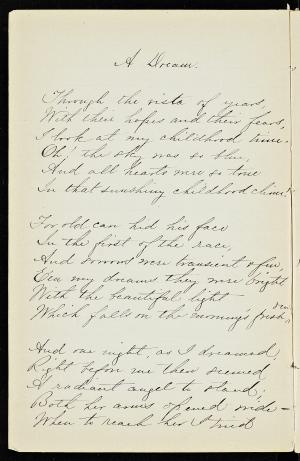 A Dream.
Through the vista of years,
With their hopes and their fears,
I look at my childhood time.
Oh! the sky was so blue,
And all hearts were so true
In that sunshiny childhood clime!
For old care hid his face
In the first of the race,
And sorrows were transient & few,
E'en my dreams they were bright
With the beautiful light
Which falls on the morning's fresh dew.
And one night, as I dreamed,
Right before me there seemed
A radiant angel to stand;
Both her arms opened wide—
When to reach her I tried